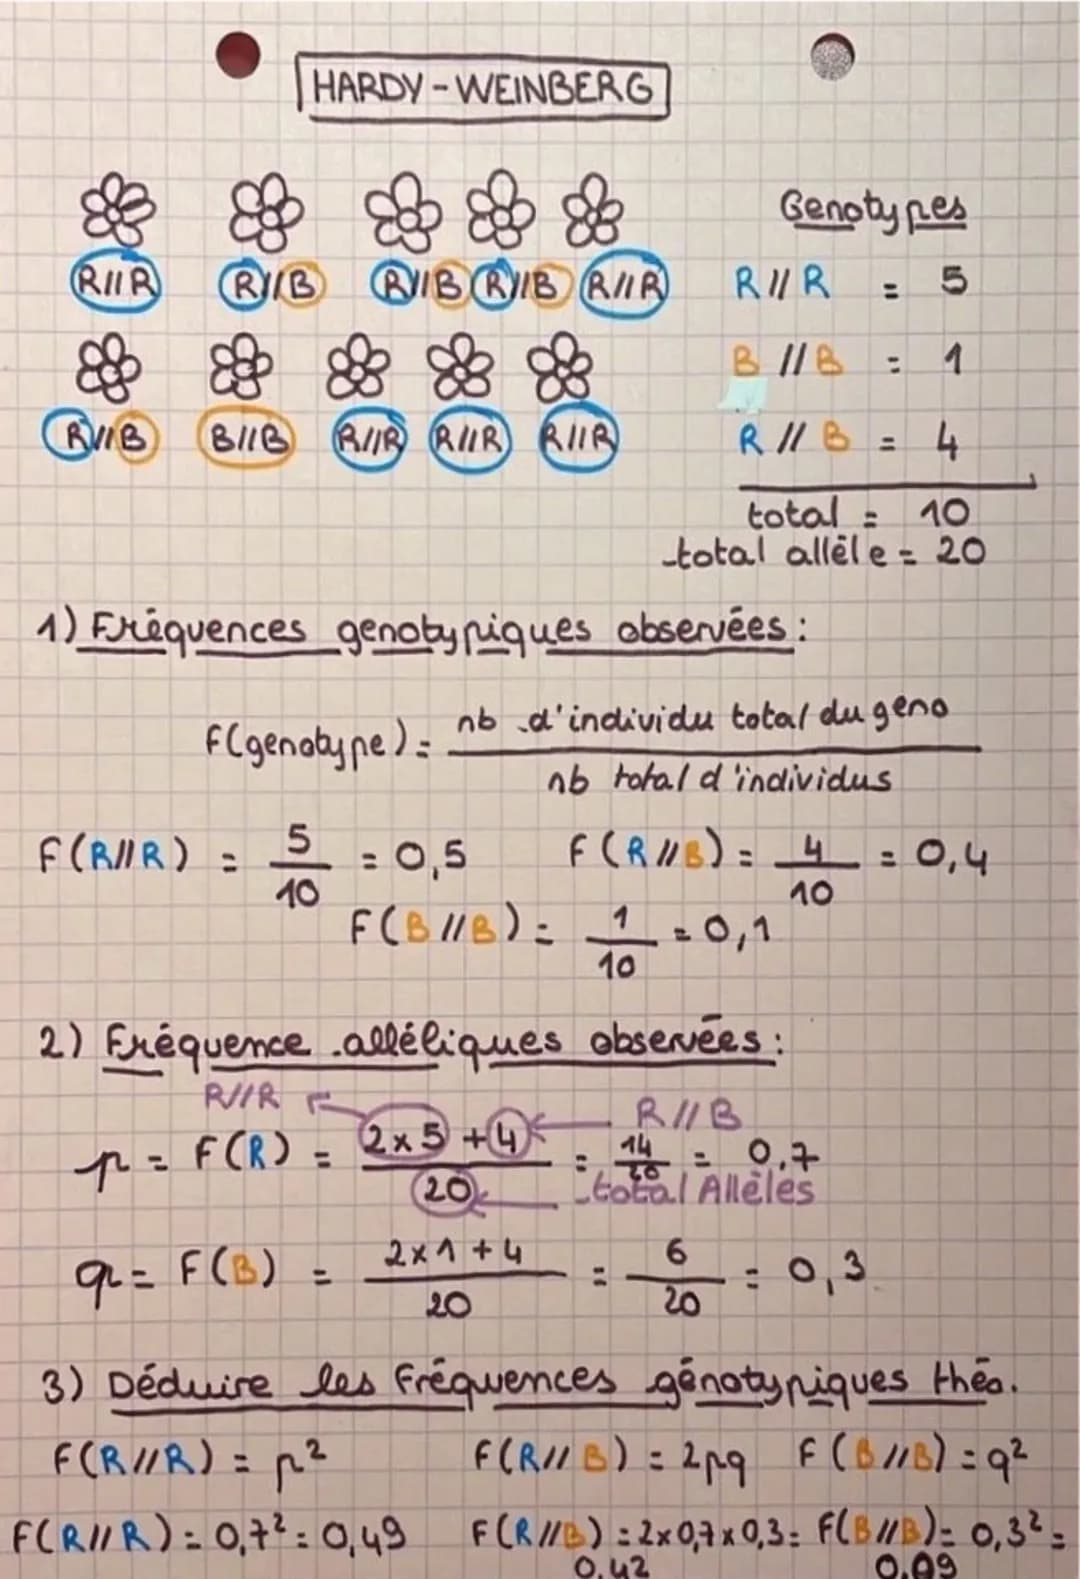 HARDY-WEINBERG
Genotypes
R//R R//B R//B R//B R//R
R//R = 5
B//B = 1
R//B B//B R//R R//R R//R
R//B = 4
total = 10
total allèle = 20
1) Fréquences genotypiques observées :
F(genotype) = nb d'individu total du geno
nb total d'individus
F(R//R) = 5/10 = 0,5 F(R//B) = 4/10 = 0,4
F(B//B) = 1/10 = 0,1
2) Fréquence alléliques observées :
R//R R//B
p = F(R) = 2x5 + 4 / 20 = 14/20 = 0,7
total Allèles
q = F(B) = 2x1 + 4 / 20 = 6/20 = 0,3
3) Déduire les fréquences génotypiques théo.
F(R//R) = p² F(R//B) = 2pq F(B//B) = q²
F(R//R) = 0,7² = 0,49 F(R//B) = 2x0,7x0,3 = F(B//B) = 0,3² =
0,42 0,09